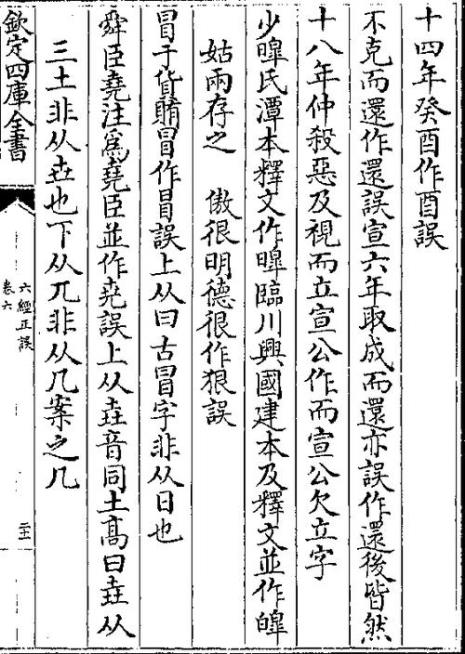 十四年癸酉作酉誤
不克而還作還誤宣六年取成而還亦誤作還後皆然
十八年仲殺惡及視而立宣公作而宣公欠立字
少暤氏潭本釋文作暤臨川興國建本及釋文並作皥
姑兩存之　傲很明德很作狠誤
冒于貨賄冒作冐誤上从曰古冒字非从日也
舜臣堯注爲堯臣並作尭誤上从垚音同土髙曰垚从
三土非从卉也下从兀非从几案之几
欽定四庫全書
六經正誤
卷六
二十一